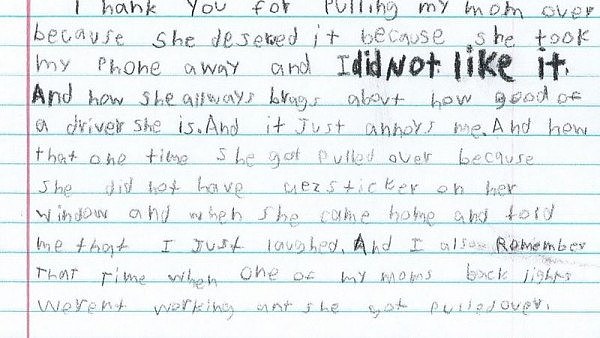 Thank you for Pulling my mom over
because she deserved it because she took
my Phone away and I did NOt like it.
And how she allways brags about how good of
a driver she is. And it Just annoys me. And how
that one time she got Pulled over because
she did not have sticker on her
window and when she came home and told
me that I Just laughed. And I also Remember
That Time when one of my moms back lights
werent working ant she got pulled over.